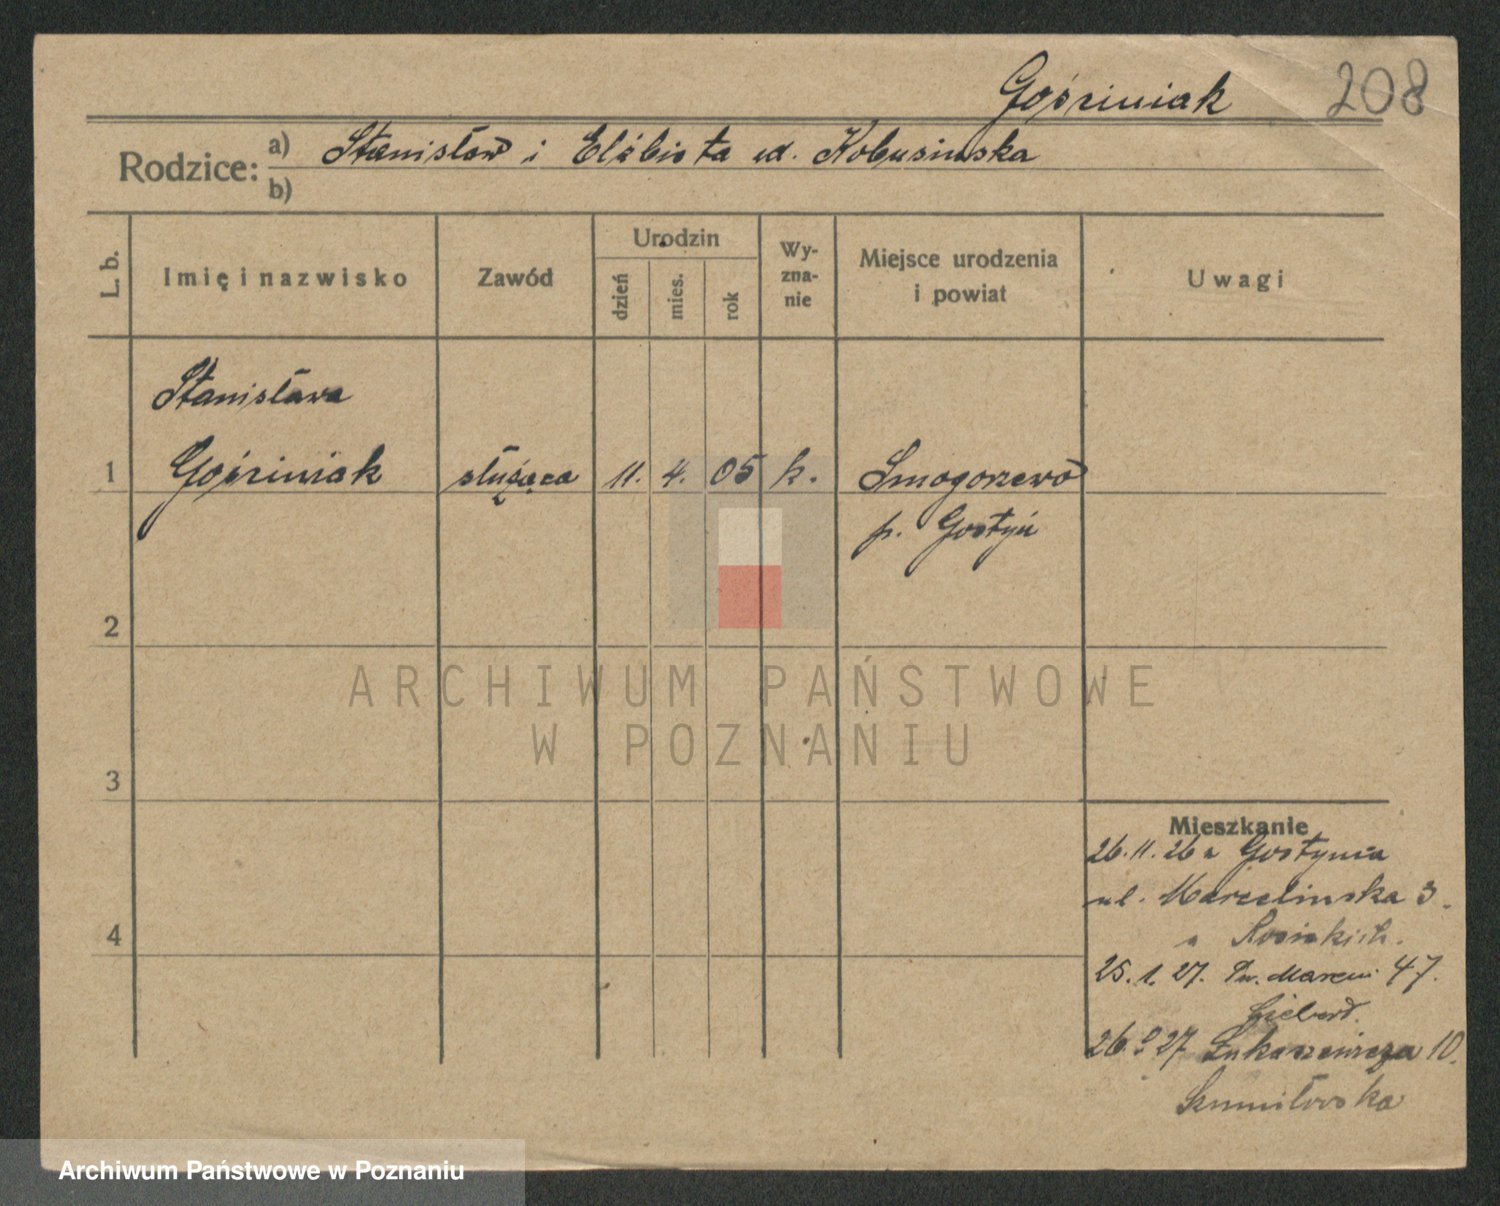 Gośiniak 208
Rodzice: a) Stanisław i Elżbieta ud. Kobusinska
b)
L. b. Imię i nazwisko Zawód Urodzin dzień mies. rok Wyznanie Miejsce urodzenia i powiat Uwagi
Stanisława
1 Gośiniak służąca 11. 4. 05 k. Smogorzewo
p. Gostyń
2
ARCHIWUM PAŃSTWOWE
W POZNANIU
3
Mieszkanie
26.11.26 z Gostynia
ul. Marcelinska 3.
4
25.1.27. 47.
26. 27 Łukaszewicza 10.
Szmiłowska
Archiwum Państwowe w Poznaniu